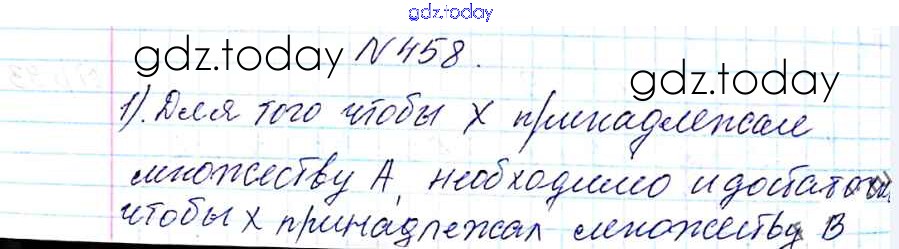 gdz.today
gdz.today N 458.
gdz.today
1). Для того чтобы x принадлежал
множеству A, необходимо и достаточн
чтобы x принадлежал множеству B